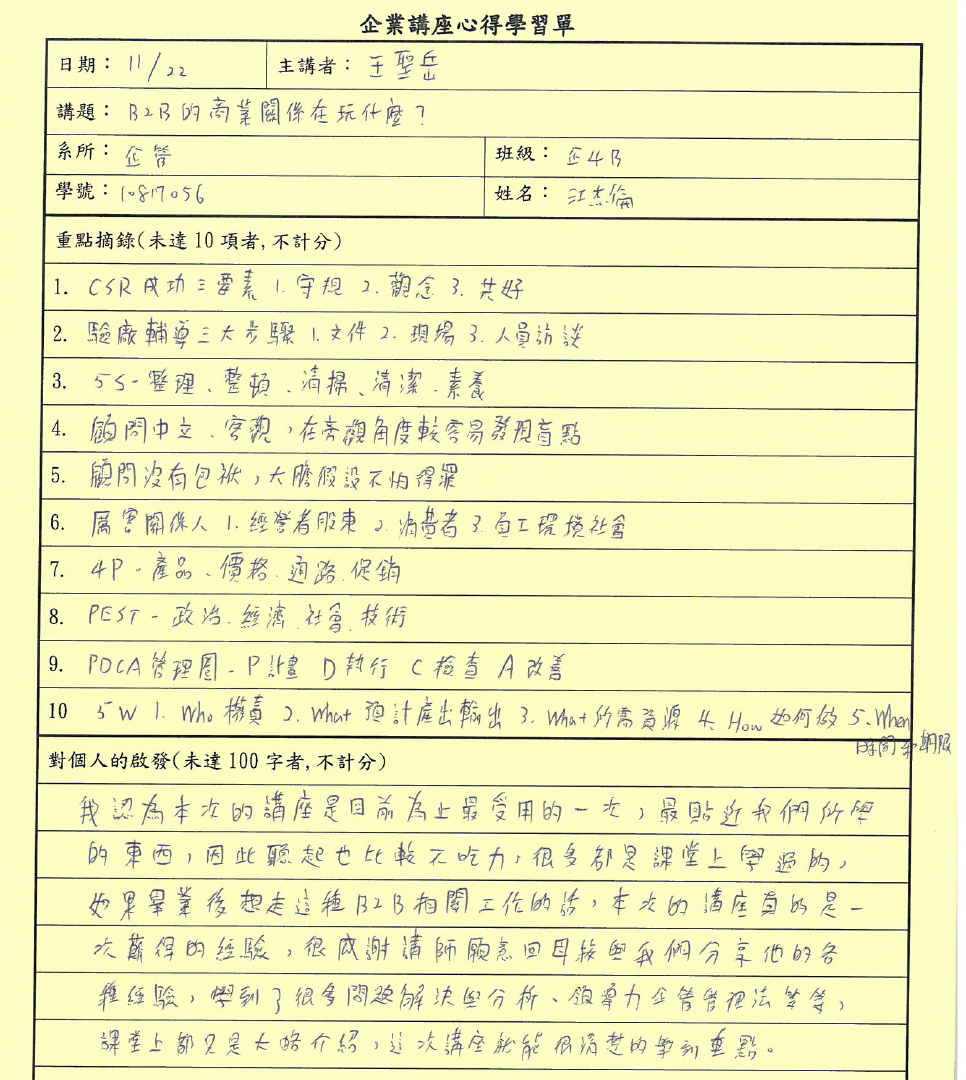 企業講座心得學習單
日期：11/22 主講者：王聖岳
講題：B2B的商業關係在玩什麼？
系所：企管 班級：企4B
學號：10817056 姓名：江杰倫
重點摘錄(未達10項者,不計分)
1. CSR成功三要素 1.守規 2.觀念 3.共好
2. 驗廠輔導三大步驟 1.文件 2.現場 3.人員訪談
3. 5S-整理、整頓、清掃、清潔、素養
4. 顧問中立、客觀，在旁觀角度較容易發現盲點
5. 顧問沒有包袱，大膽假設不怕得罪
6. 厲害關係人 1.經營者股東 2.消費者 3.員工環境社會
7. 4P-產品、價格、通路、促銷
8. PEST-政治、經濟、社會、技術
9. PDCA管理圈-P計畫 D執行 C檢查 A改善
10 5W 1. Who 權責 2. What 預計產出輸出 3. What 所需資源 4. How 如何做 5. When
時間和期限
對個人的啟發(未達100字者,不計分)
我認為本次的講座是目前為止最受用的一次，最貼近我們所學
的東西，因此聽起也比較不吃力，很多都是課堂上學過的，
如果畢業後想走這種B2B相關工作的話，本次的講座真的是一
次難得的經驗，很感謝講師願意回母校與我們分享他的各
種經驗，學到了很多問題解決與分析、領導力企管管理法等等，
課堂上都只是大略介紹，這次講座就能很清楚的學到重點。